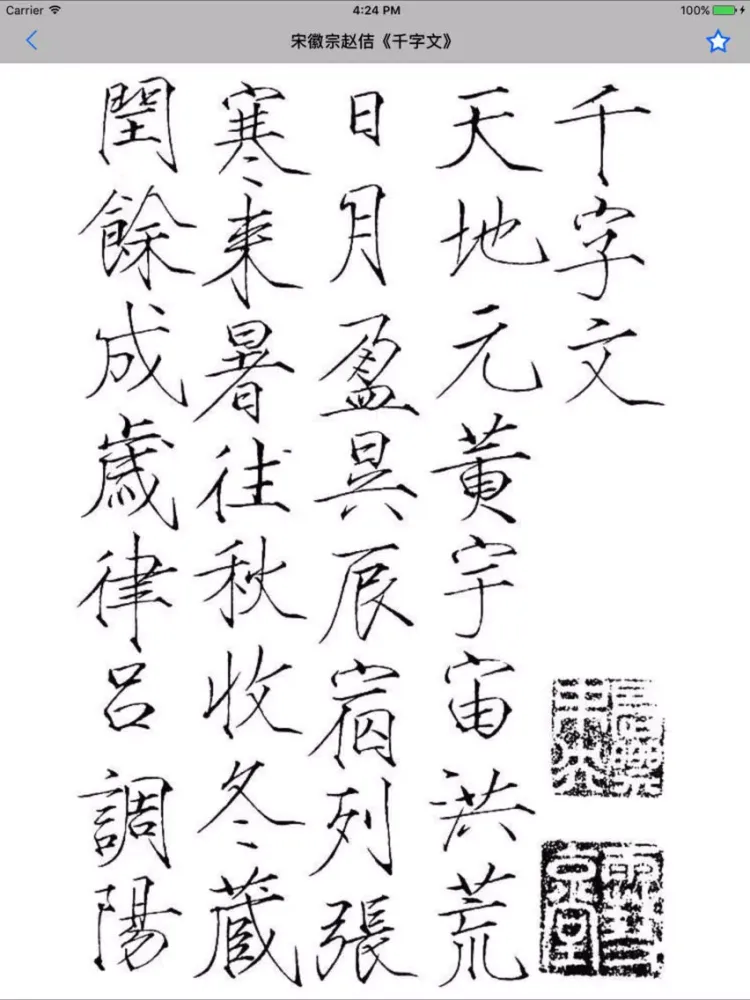 Carrier
4:24 PM
100%
宋徽宗赵佶《千字文》
千字文
天地元黃宇宙洪荒
日月盈昃辰宿列張
寒来暑往秋收冬蔵
閏餘成歲律呂調陽